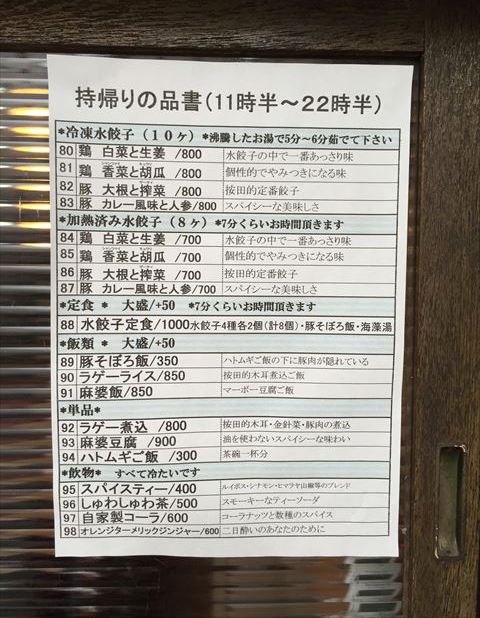 持帰りの品書(11時半～22時半)
*冷凍水餃子(10ヶ) *沸騰したお湯で5分～6分茹でて下さい
80 鶏 白菜と生姜 /800 水餃子の中で一番あっさり味
81 鶏 香菜と胡瓜 /800 個性的でやみつきになる味
82 豚 大根と搾菜 /800 按田的定番餃子
83 豚 カレー風味と人参/800 スパイシーな美味しさ
*加熱済み水餃子(8ヶ) *7分くらいお時間頂きます
84 鶏 白菜と生姜 /700 水餃子の中で一番あっさり味
85 鶏 香菜と胡瓜 /700 個性的でやみつきになる味
86 豚 大根と搾菜 /700 按田的定番餃子
87 豚 カレー風味と人参 /700 スパイシーな美味しさ
*定食 * 大盛/+50 *7分くらいお時間頂きます
88 水餃子定食/1000 水餃子4種各2個(計8個)・豚そぼろ飯・海藻湯
*飯類 * 大盛/+50
89 豚そぼろ飯/350 ハトムギご飯の下に豚肉が隠れている
90 ラゲーライス/850 按田的木耳煮込ご飯
91 麻婆飯/850 マーボー豆腐ご飯
*単品*
92 ラゲー煮込 /800 按田的木耳・金針菜・豚肉の煮込
93 麻婆豆腐 /900 油を使わないスパイシーな味わい
94 ハトムギご飯 /300 茶碗一杯分
*飲物* すべて冷たいです
95 スパイスティー/400 ルイボス・シナモン・ヒマラヤ山椒等のブレンド
96 しゅわしゅわ茶/500 スモーキーなティーソーダ
97 自家製コーラ/600 コーラナッツと数種のスパイス
98 オレンジターメリックジンジャー/600 二日酔いのあなたのために